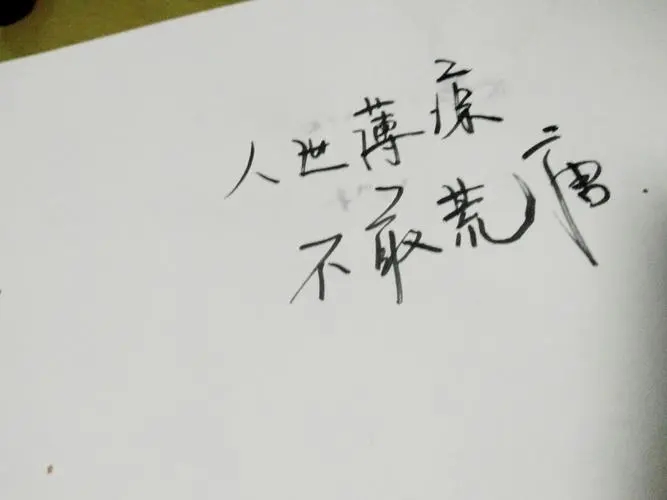 人世薄凉
不敢荒唐.